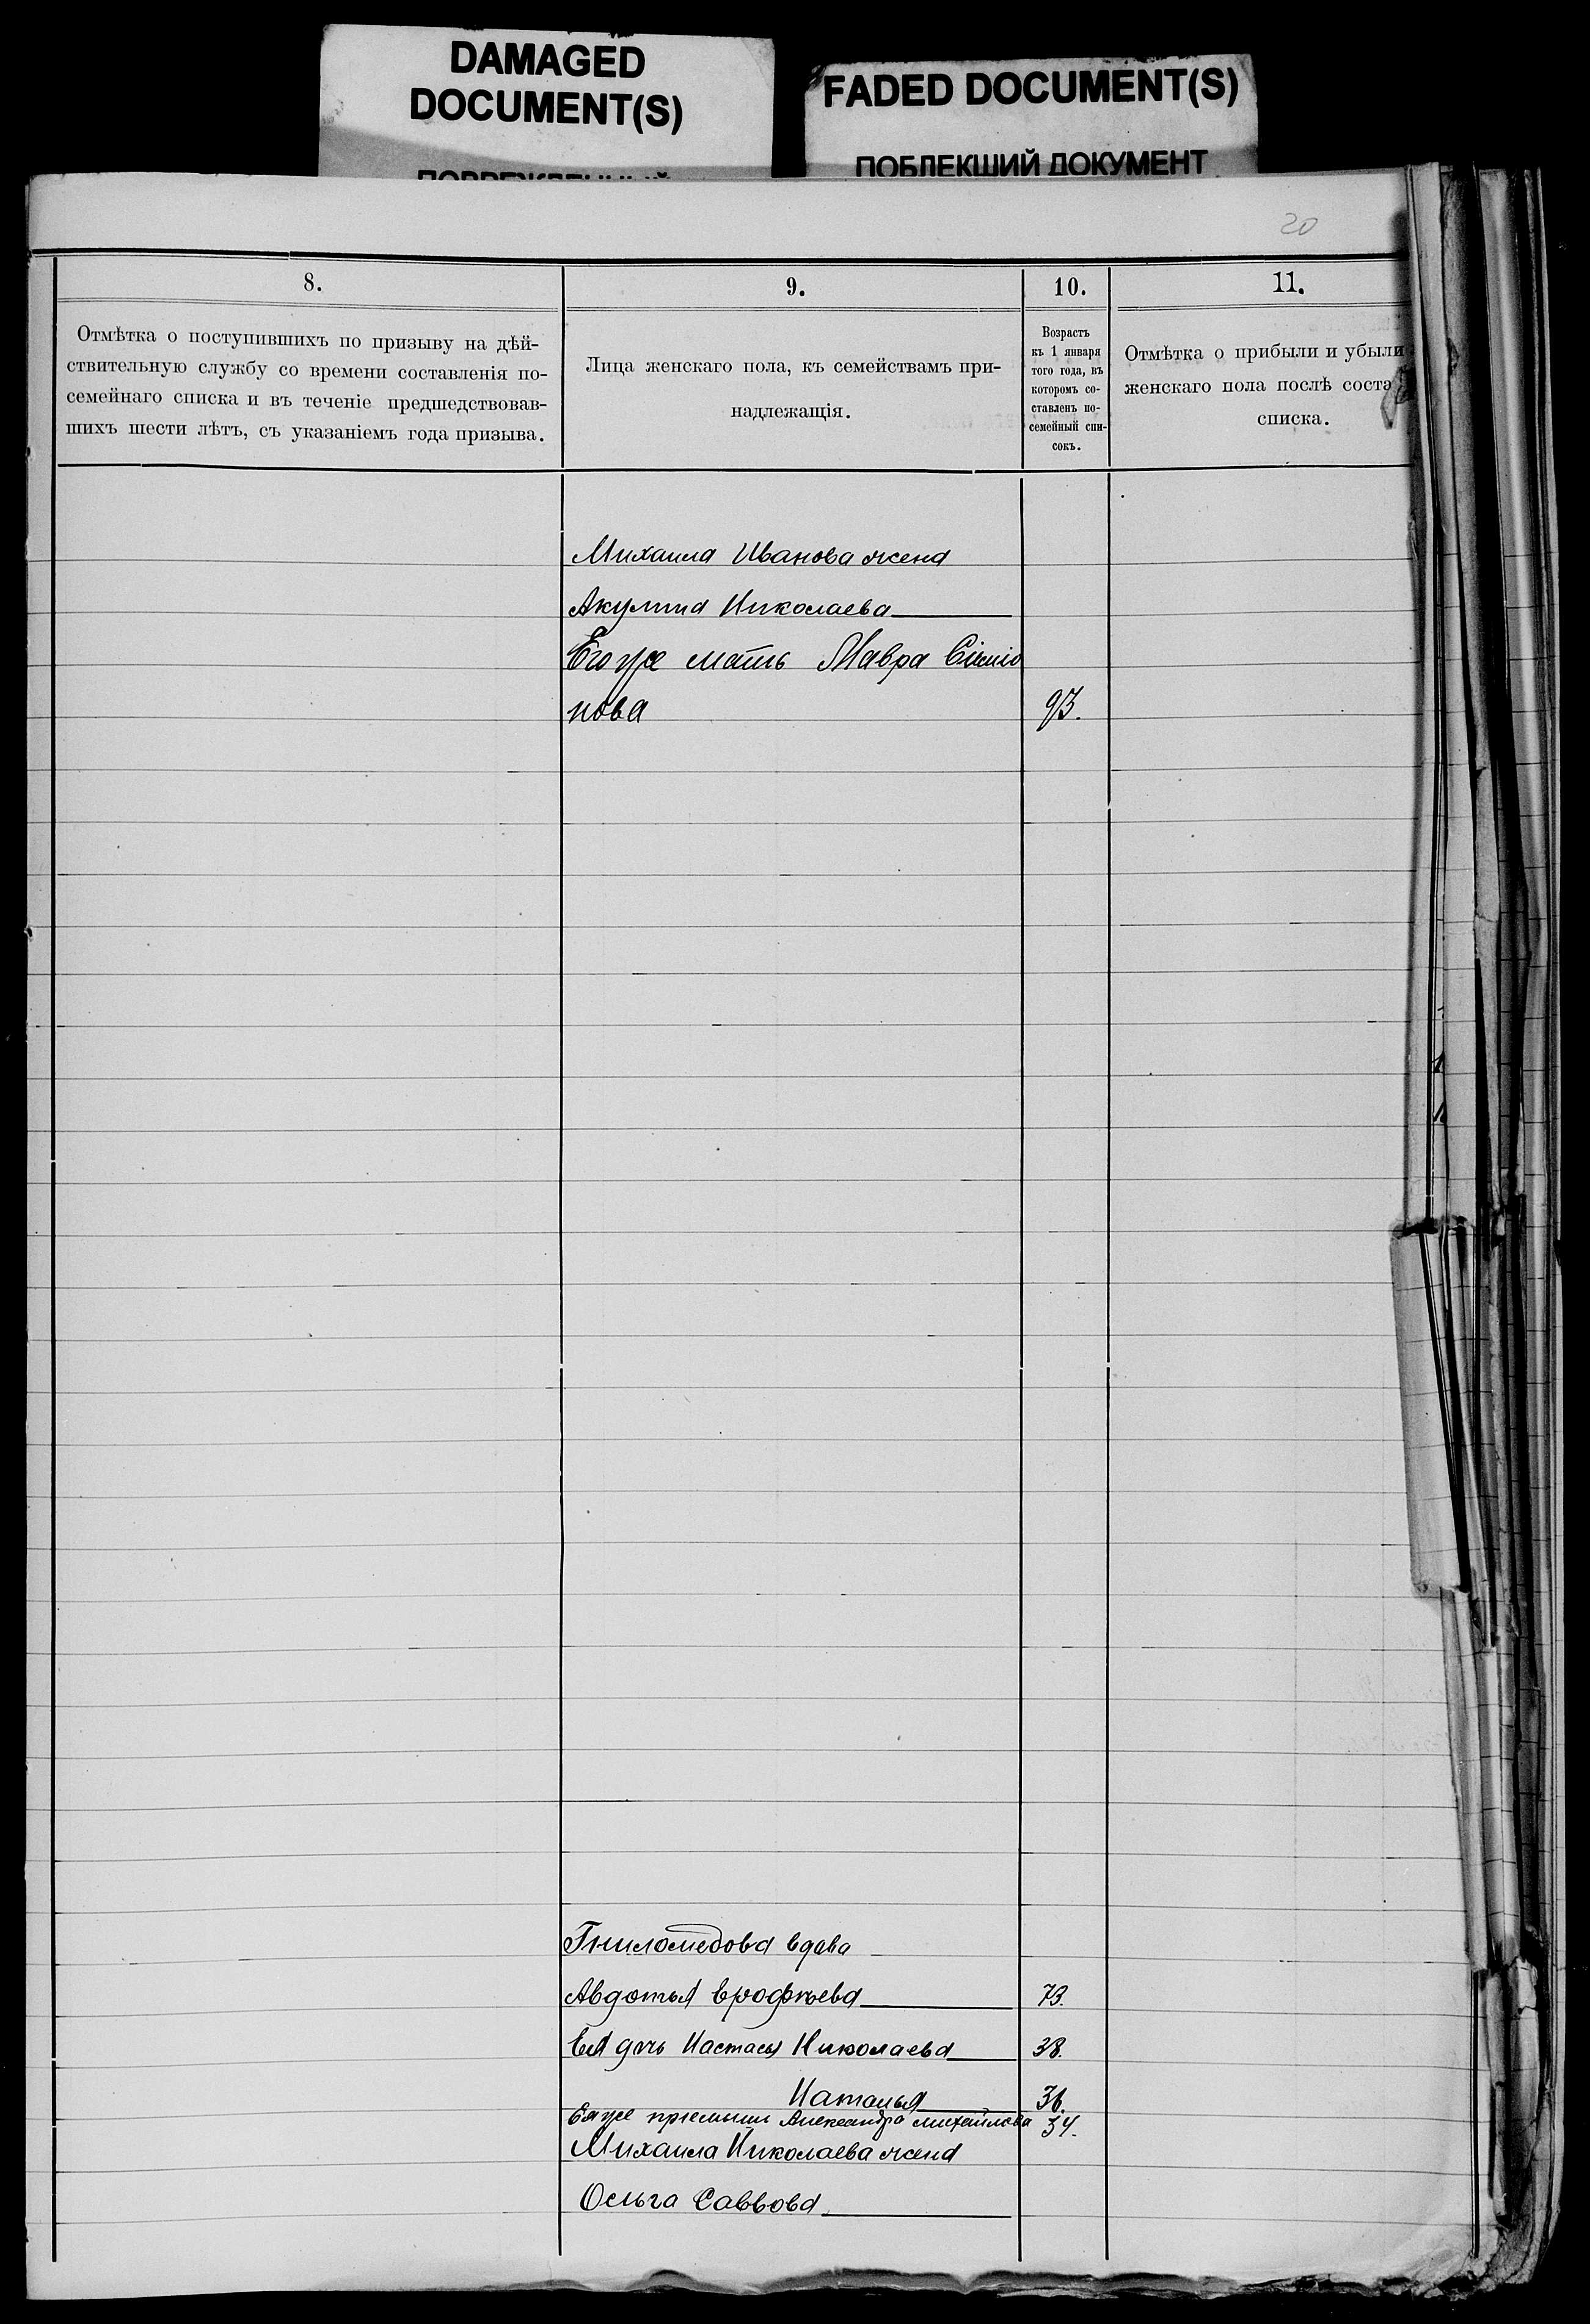 DAMAGED
DOCUMENT(S)
FADED DOCUMENT(S)
ПОБЛЕКШИЙ ДОКУМЕНТ
20
8.
9.
10.
11.
Отмѣтка о поступившихъ по призыву на дѣй-
ствительную службу со времени составленія по-
семейнаго списка и въ теченіе предшедствовав-
шихъ шести лѣтъ, съ указаніемъ года призыва.
Лица женскаго пола, къ семействамъ при-
надлежащія.
Возрастъ
къ 1 января
того года, въ
которомъ со-
ставленъ по-
семейный спи-
сокъ.
Отмѣтка о прибыли и убыли
женскаго пола послѣ соста
списка.
Михаила Иванова жена
Акулина Николаева
Его же мать Мавра
нова 93.
вдова
Авдотья Ерофѣева 73.
Ея дочь Настасья Николаева 38.
Наталья 36.
Ея же пріемыш Александра Михайлова 34.
Михаила Николаева жена
Ольга Саввова